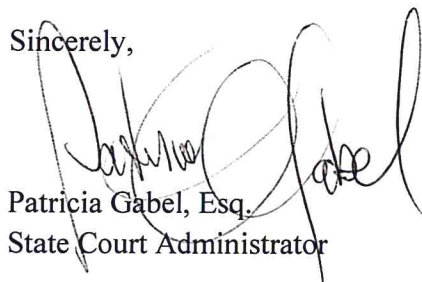 Sincerely,
Patricia Gabel
Patricia Gabel, Esq.
State Court Administrator